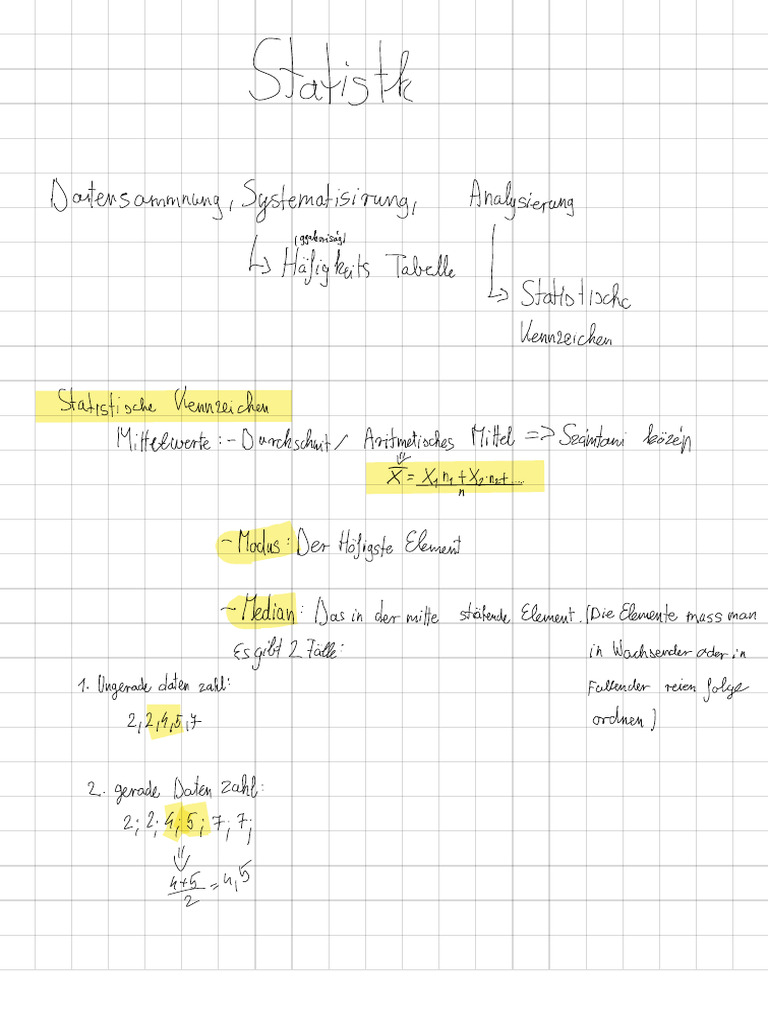 Statistk
Datensammnung, Systematisirung, Analysierung
(gyakoriság)
↳ Häfigkeits Tabelle
↳ Statistische
Kennzeichen
Statistische Kennzeichen
Mittelwerte: - Durchschnit / Aritmetisches Mittel => Számtani közép
X̄ = X₁n₁ + X₂·n₂+....
n
- Modus: Der Höfigste Element
- Median: Das in der mitte stähende Element. (Die Elemente mass man
Es gibt 2 Fälle: in Wachsender oder in
1. Ungerade daten zahl: Fallender reien folge
2, 2, 4, 5, 7 ordnen)
2. gerade Daten zahl:
2; 2; 4; 5; 7; 7;
4+5
2 = 4,5